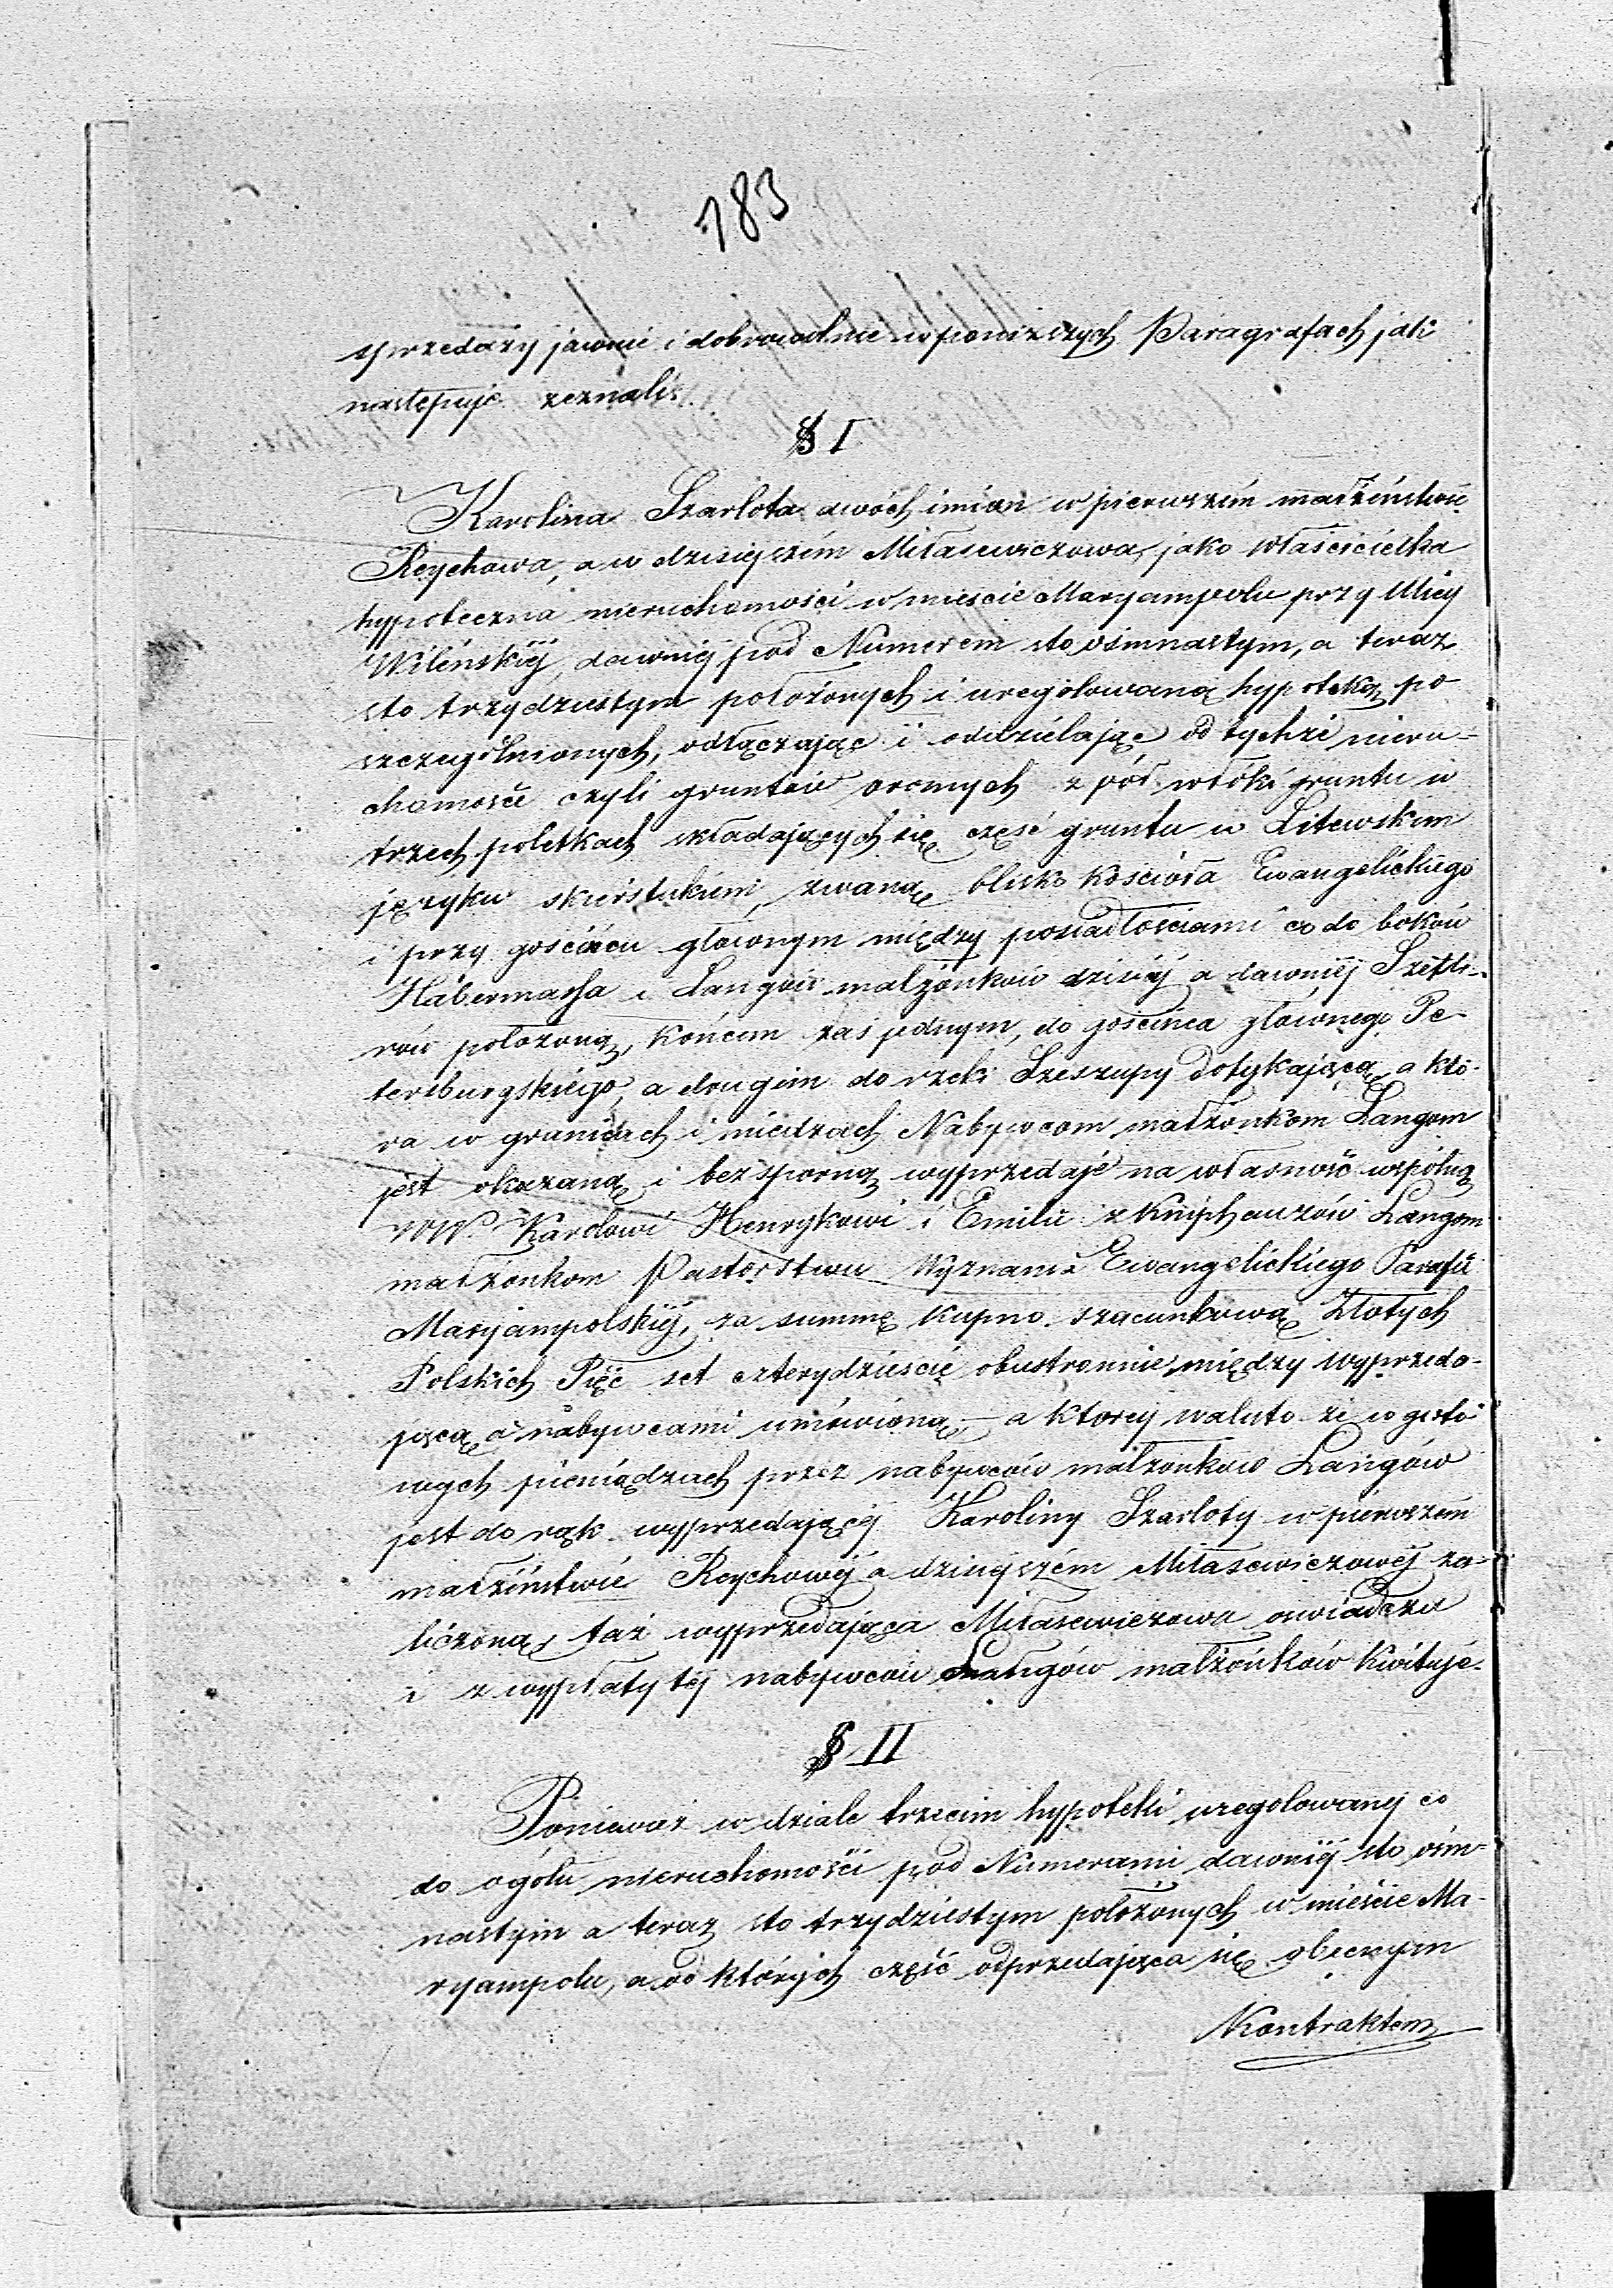 183
sprzedaży jawnie i dobrowolnie w poniższych Paragrafach jak
następuje zeznali.
§ I
Karolina Szarlota dwóch imion w pierwszém małżeństwie
Reychowa, a w dzisiejszém Miłasewiczowa, jako właścicielka
hypoteczna nieruchomości w mieście Maryampolu przy Ulicy
Wileńskiéj, dawniéj pod Numerem sto ośmnastym, a teraz
sto trzydziestym położonych i uregolowaną hypoteką po
szczegolnionych, odłączając i oddzielając od tychże nieru-
chomości czyli gruntów ornych z pół włóki gruntu w
trzech poletkach składających się część gruntu w Litewskim
języku zwaną blisko kościoła Ewangelickiego
i przy gościńcu głownym między posiadłościami co do boków
Habermassa i Langów małżonków dzisiéj a dawniéj
rów położoną, końcem zaś jednym, do gościńca głównego Pe-
tersburgskiego, a drugim do rzeki Szeszupy dotykającą, a któ-
ra w granicach i miedzach Nabywcom małżonkom Langom
jest okazaną i bezsporną wyprzedaje na własność wspólną
WW. Karolowi Henrykowi i Emilii z Kniphauzów Langom
małżonkom Pastorstwu Wyznania Ewangelickiego Parafii
Maryampolskiéj, za summę kupno szacunkową Złotych
Polskich Pięć set czterydzieście obustronnie między wyprzeda-
jącą a nabywcami umówioną, – a ktorej waluta że w goto-
wych pieniądzach przez nabywców małżonków Langów
jest do rąk wyprzedającéj Karoliny Szarloty w pierwszém
małżeństwie Reychowéj a dzisiejszém Miłasewiczowéj za-
liczoną, taż wyprzedająca Miłasewiczowa oświadcza
i z wypłaty téj nabywców Langów małżonków kwituje.
§ II
Ponieważ w dziale trzecim hypoteki uregolowanej co
do ogółu nieruchomości pod Numerami dawniéj sto ośm-
nastym a teraz sto trzydziestym położonych w mieście Ma-
ryampolu, a od których część odprzedająca się obecnym
Kontraktem